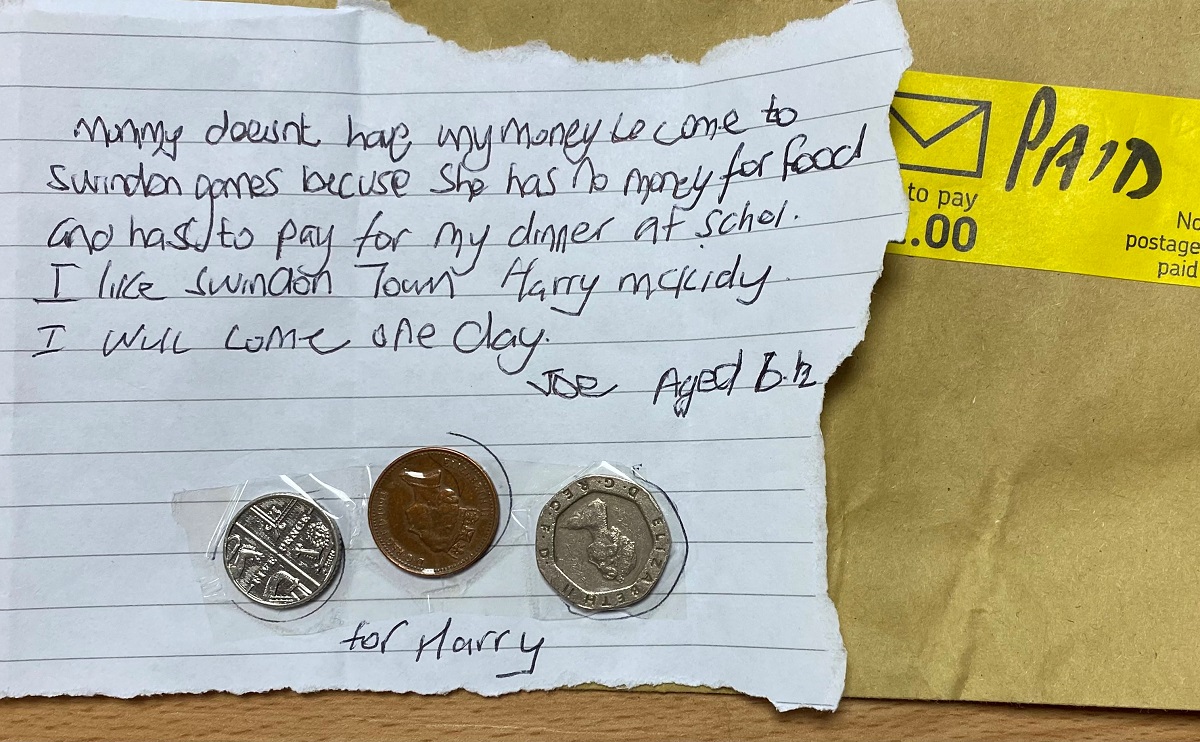 Mummy doesnt have any money to come to
Swindon games becuse she has no money for food
and has to pay for my dinner at schol.
I like Swindon Town Harry mckidy
I will come one day.
Joe Aged 6.½
for Harry
PAID
to pay
.00
No
postage
paid
ELIZABETH II D·G·REG·F·D